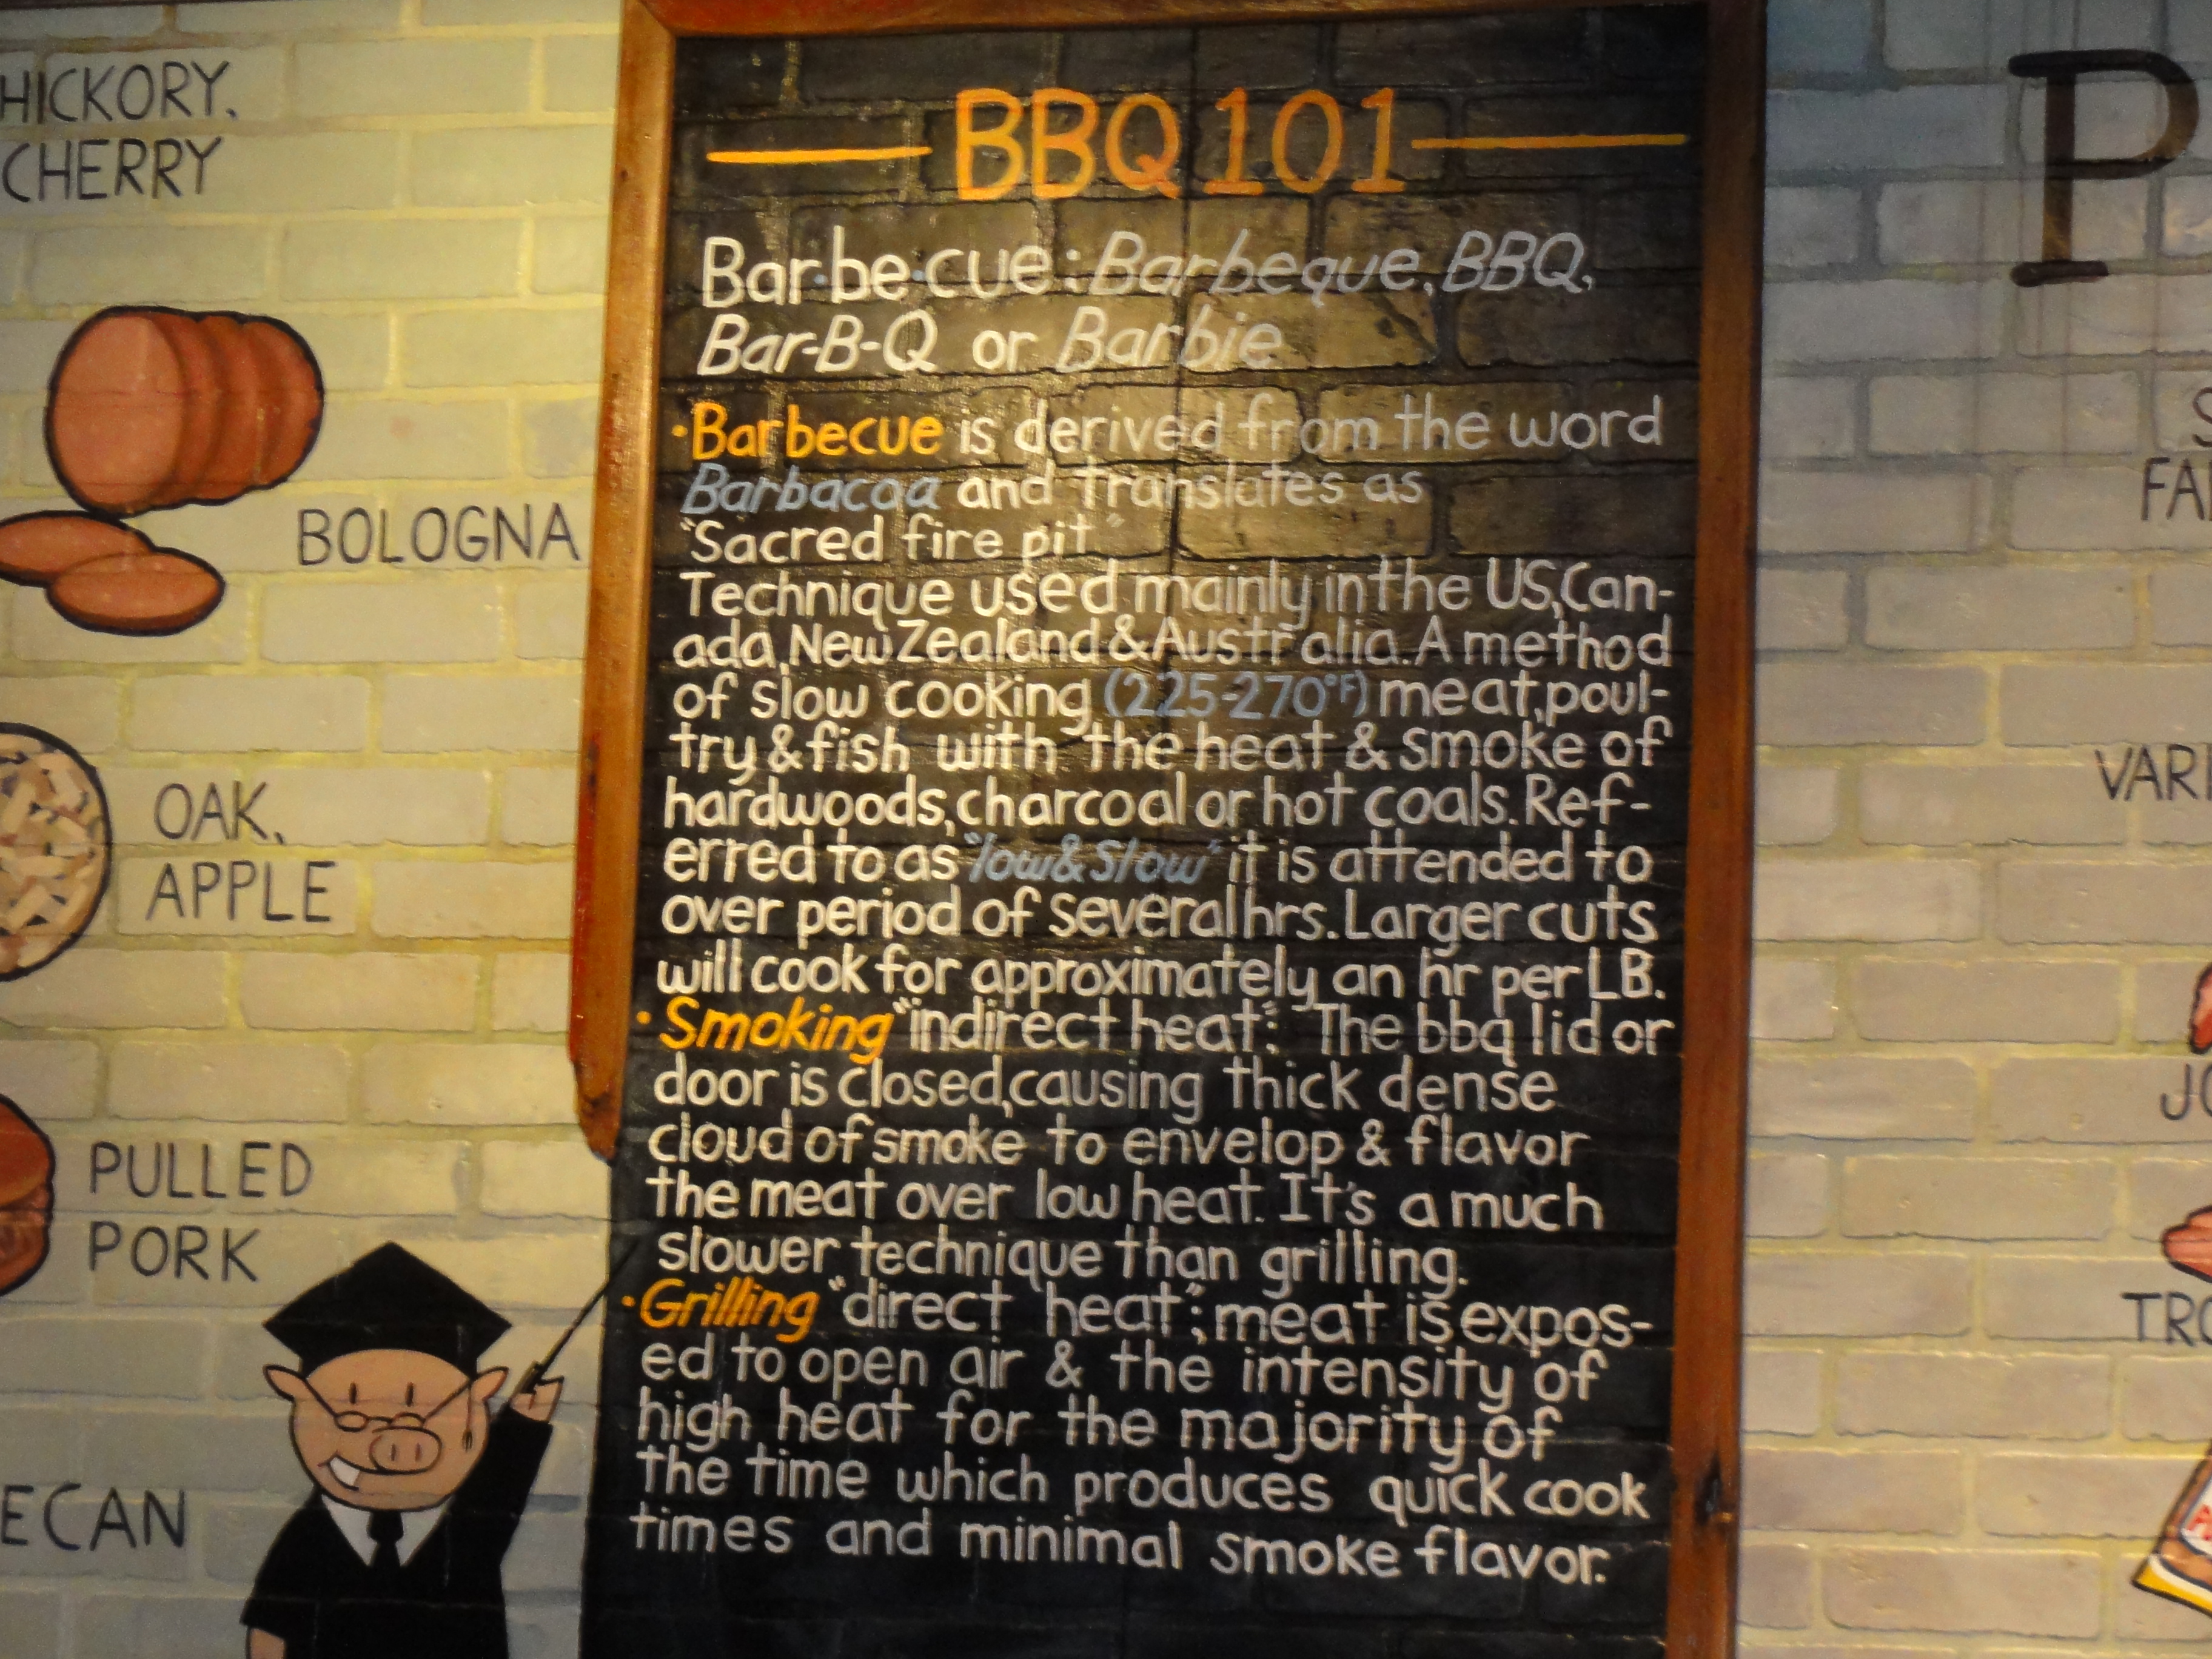 HICKORY,
CHERRY
BOLOGNA
OAK,
APPLE
PULLED
PORK
BBQ 101
Bar·be·cue: Barbeque, BBQ,
Bar-B-Q or Barbie
·Barbecue is derived from the word
Barbacoa and translates as
"Sacred fire pit"
Technique used mainly in the US, Can-
ada, New Zealand & Australia. A method
of slow cooking (225-270°F) meat, poul-
try & fish with the heat & smoke of
hardwoods, charcoal or hot coals. Ref-
erred to as "low & slow" it is attended to
over period of several hrs. Larger cuts
will cook for approximately an hr per LB.
·Smoking "indirect heat": The bbq lid or
door is closed, causing thick dense
cloud of smoke to envelop & flavor
the meat over low heat. It's a much
slower technique than grilling.
·Grilling "direct heat"; meat is expos-
ed to open air & the intensity of
high heat for the majority of
the time which produces quick cook
times and minimal smoke flavor.